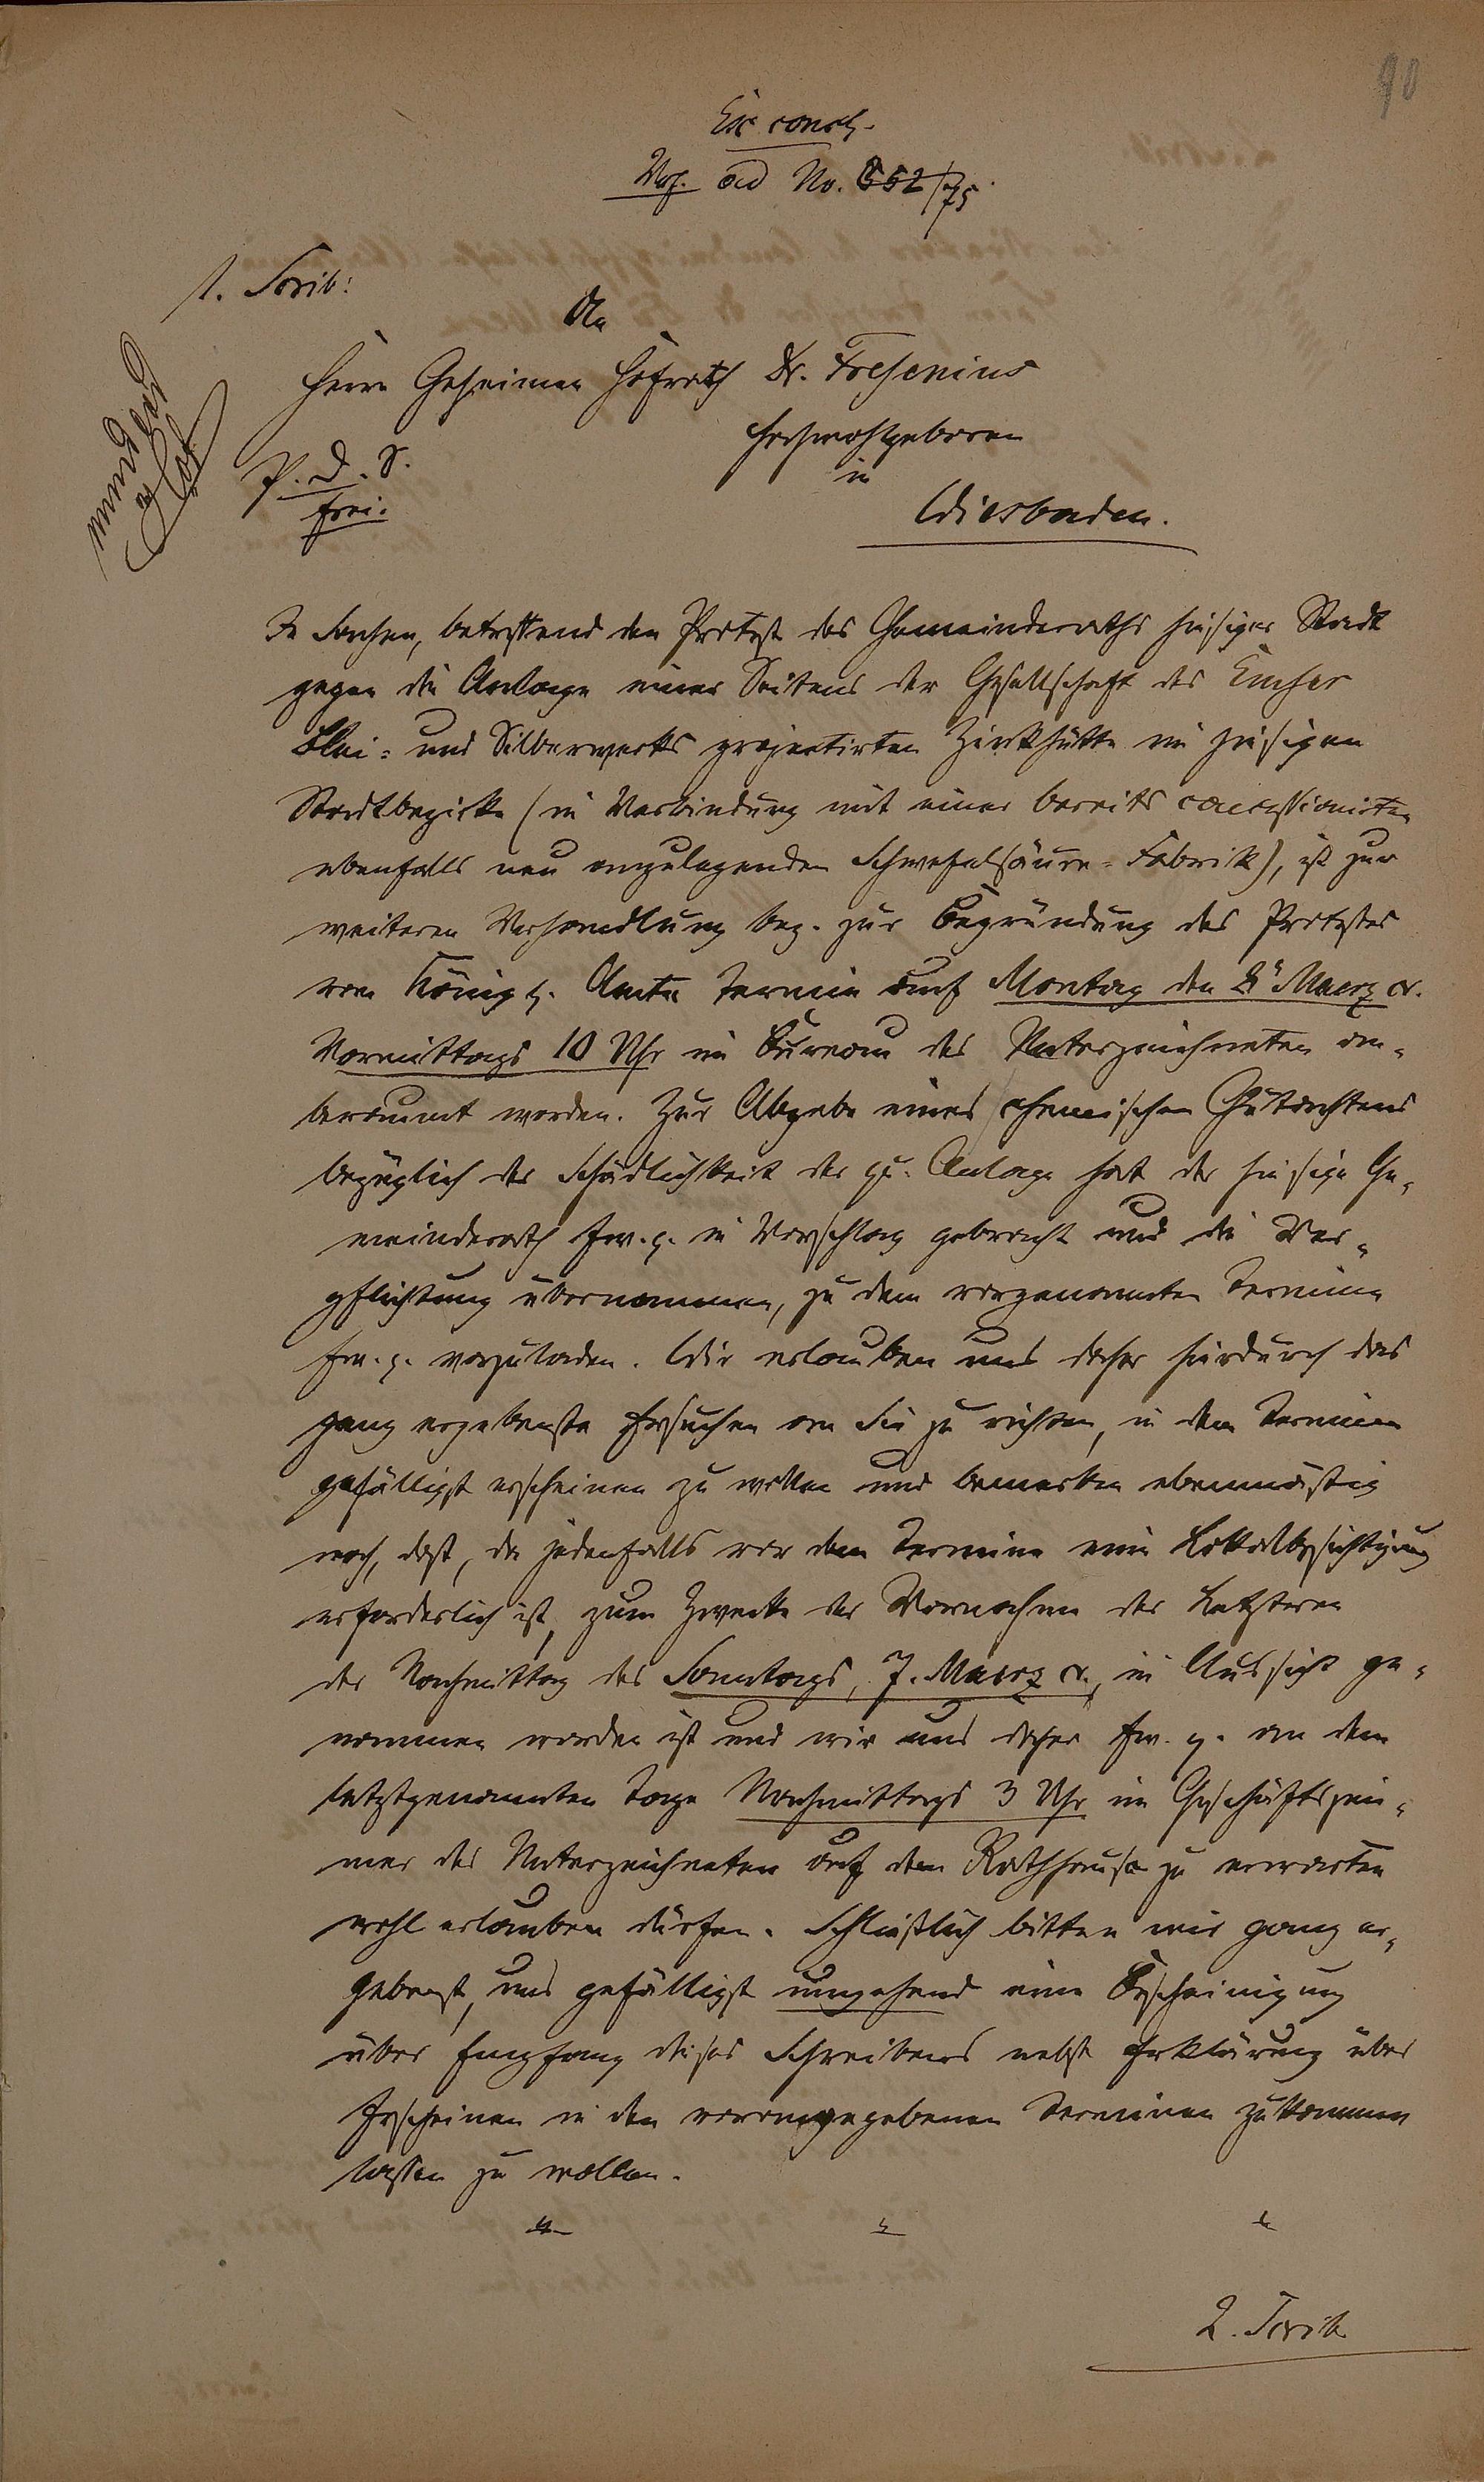 90
Ex conch.
Vfg. ad No. 552/75.
1. Scrib:
An
Herrn Geheimen Hofrath Dr. Fresenius
Hochwohlgeboren
in
Wiesbaden.
P. D. S.
frei.
mundirt
In Sachen, betreffend den Protest des Gemeinderaths hiesiger Stadt
gegen die Anlage einer Seitens der Gesellschaft des Emser
Blei- und Silberwerks projectirten Zinkhütte im hiesigen
Stadtbezirke (in Verbindung mit einer bereits concessionirten
ebenfalls neu anzulegenden Schwefelsäure-Fabrik), ist zur
weiteren Verhandlung bez. zur Begründung des Protestes
vom Königl. Amte Termin auf Montag den 8ⁿ Maerz cr.
Vormittags 10 Uhr im Bureau des Unterzeichneten an-
beraumt worden. Zur Abgabe eines chemischen Gutachtens
bezüglich der Schädlichkeit der qu. Anlage hat der hiesige Ge-
meinderath Ew. p. in Vorschlag gebracht und die Ver-
pflichtung übernommen, zu dem vorgenannten Termine
Ew. p. vorzuladen. Wir erlauben uns daher hierdurch das
ganz ergebenste Ersuchen an Sie zu richten, in dem Termine
gefälligst erscheinen zu wollen und bemerken ebenmäßig
noch, daß, da jedenfalls vor dem Termine eine Lokalbesichtigung
erforderlich ist, zum Zwecke der Vornahme der Letzteren
der Nachmittag des Sonntags, 7. Maerz cr., in Aussicht ge-
nommen worden ist und wir uns daher Ew. p. an dem
letztgenannten Tage Nachmittags 3 Uhr im Geschäftszim-
mer des Unterzeichneten auf dem Rathhause zu erwarten
wohl erlauben dürfen. Schließlich bitten wir ganz er-
gebenst, uns gefälligst umgehend eine Bescheinigung
über Empfang dieses Schreibens nebst Erklärung über
Erscheinen in den vorangegebenen Terminen zukommen
lassen zu wollen.
2. Scrib.